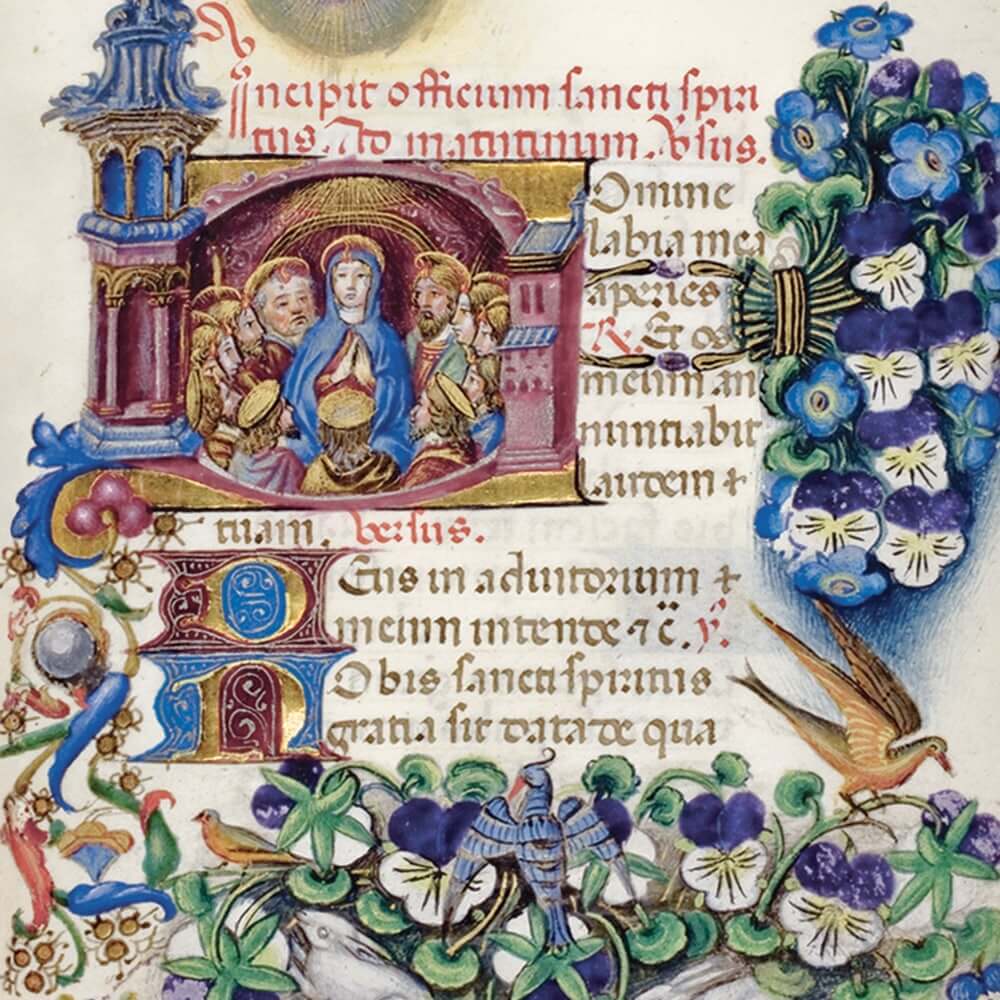 Incipit officium sancti spiri
tus. Ad matutinum. Vsus.
Domine
labia mea
aperies
R. Et os
meum an
nuntiabit
laudem +
tuam. Versus.
Deus in adiutorium +
meum intende ⁊ c̄. ℣.
Nobis sancti spiritus
gratia sit data de qua